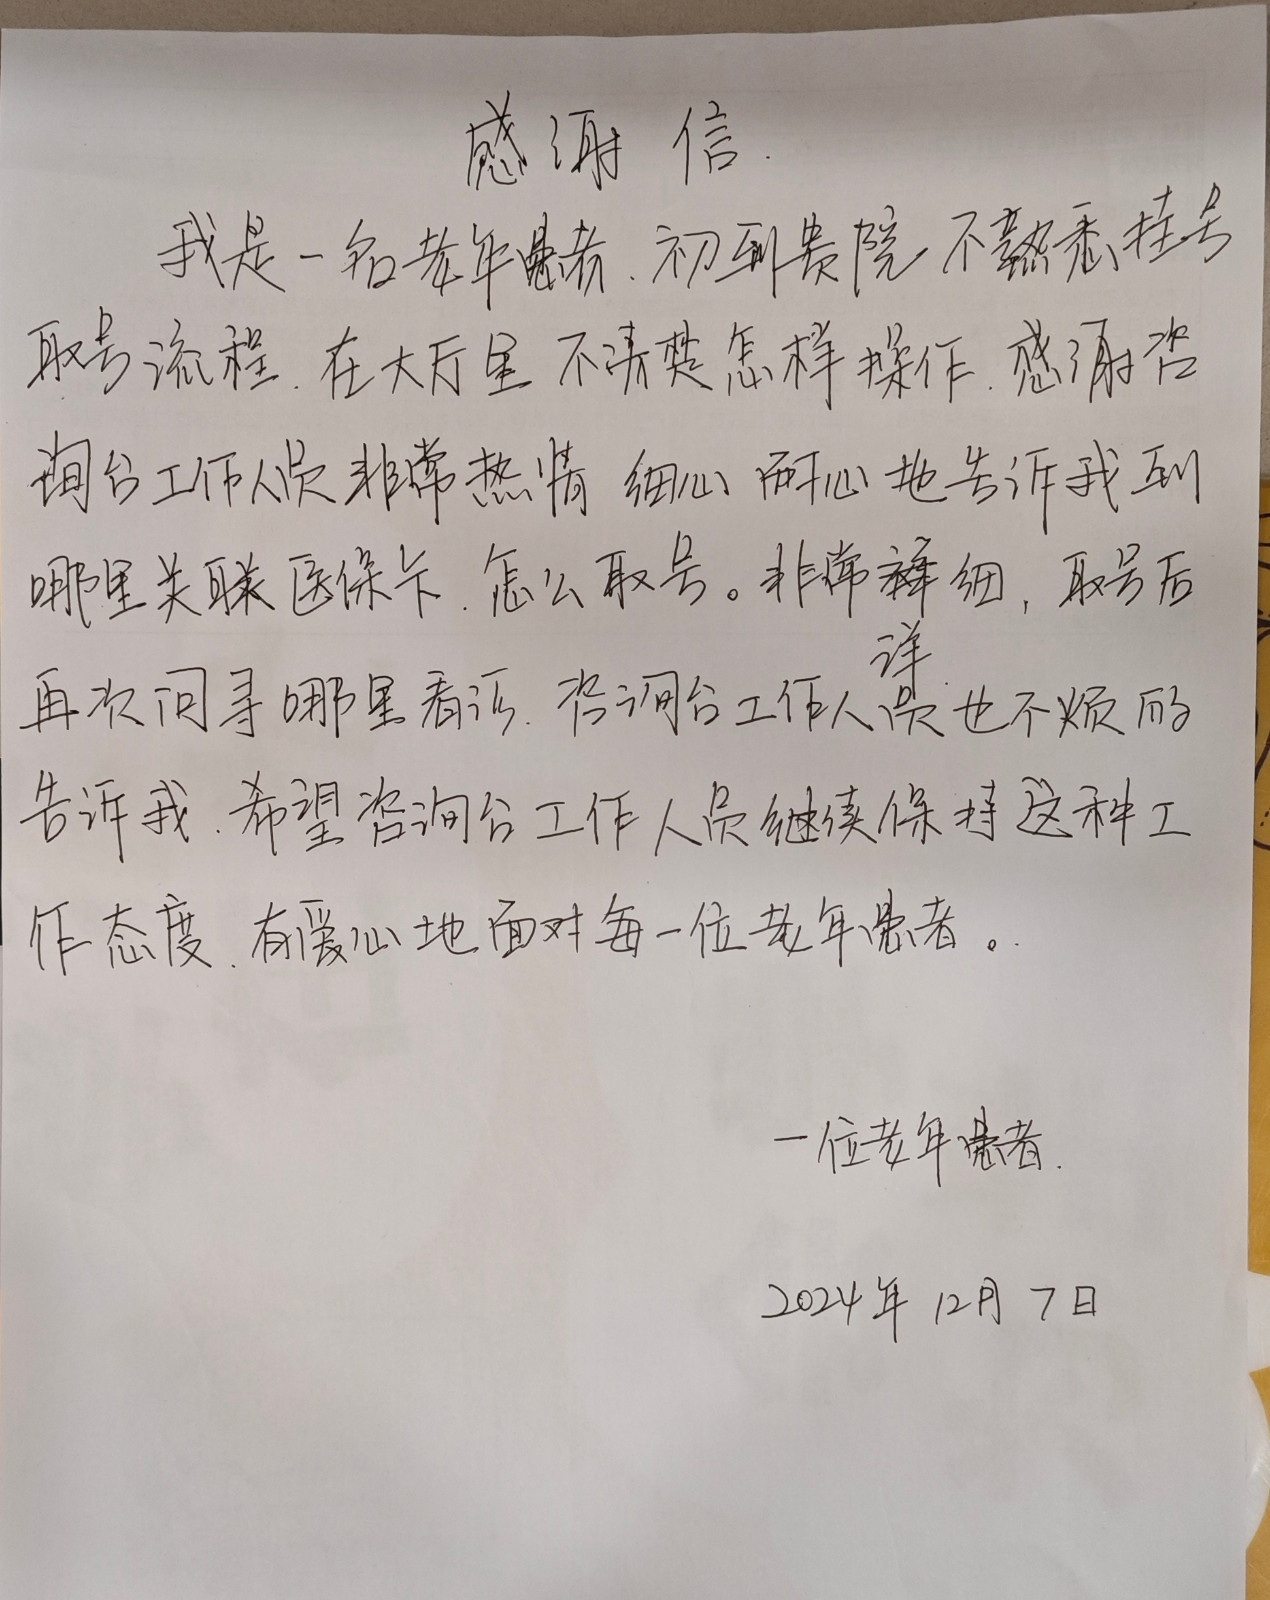 感谢信.
我是一名老年患者.初到贵院不熟悉挂号
取号流程.在大厅里不清楚怎样操作.感谢咨
询台工作人员非常热情 细心 耐心地告诉我到
哪里关联医保卡.怎么取号。非常 细,取号后
详
再次问寻哪里看 .咨询台工作人员也不烦的
告诉我.希望咨询台工作人员继续保持这种工
作态度.有爱心地面对每一位老年患者。
一位老年患者.
2024年12月7日